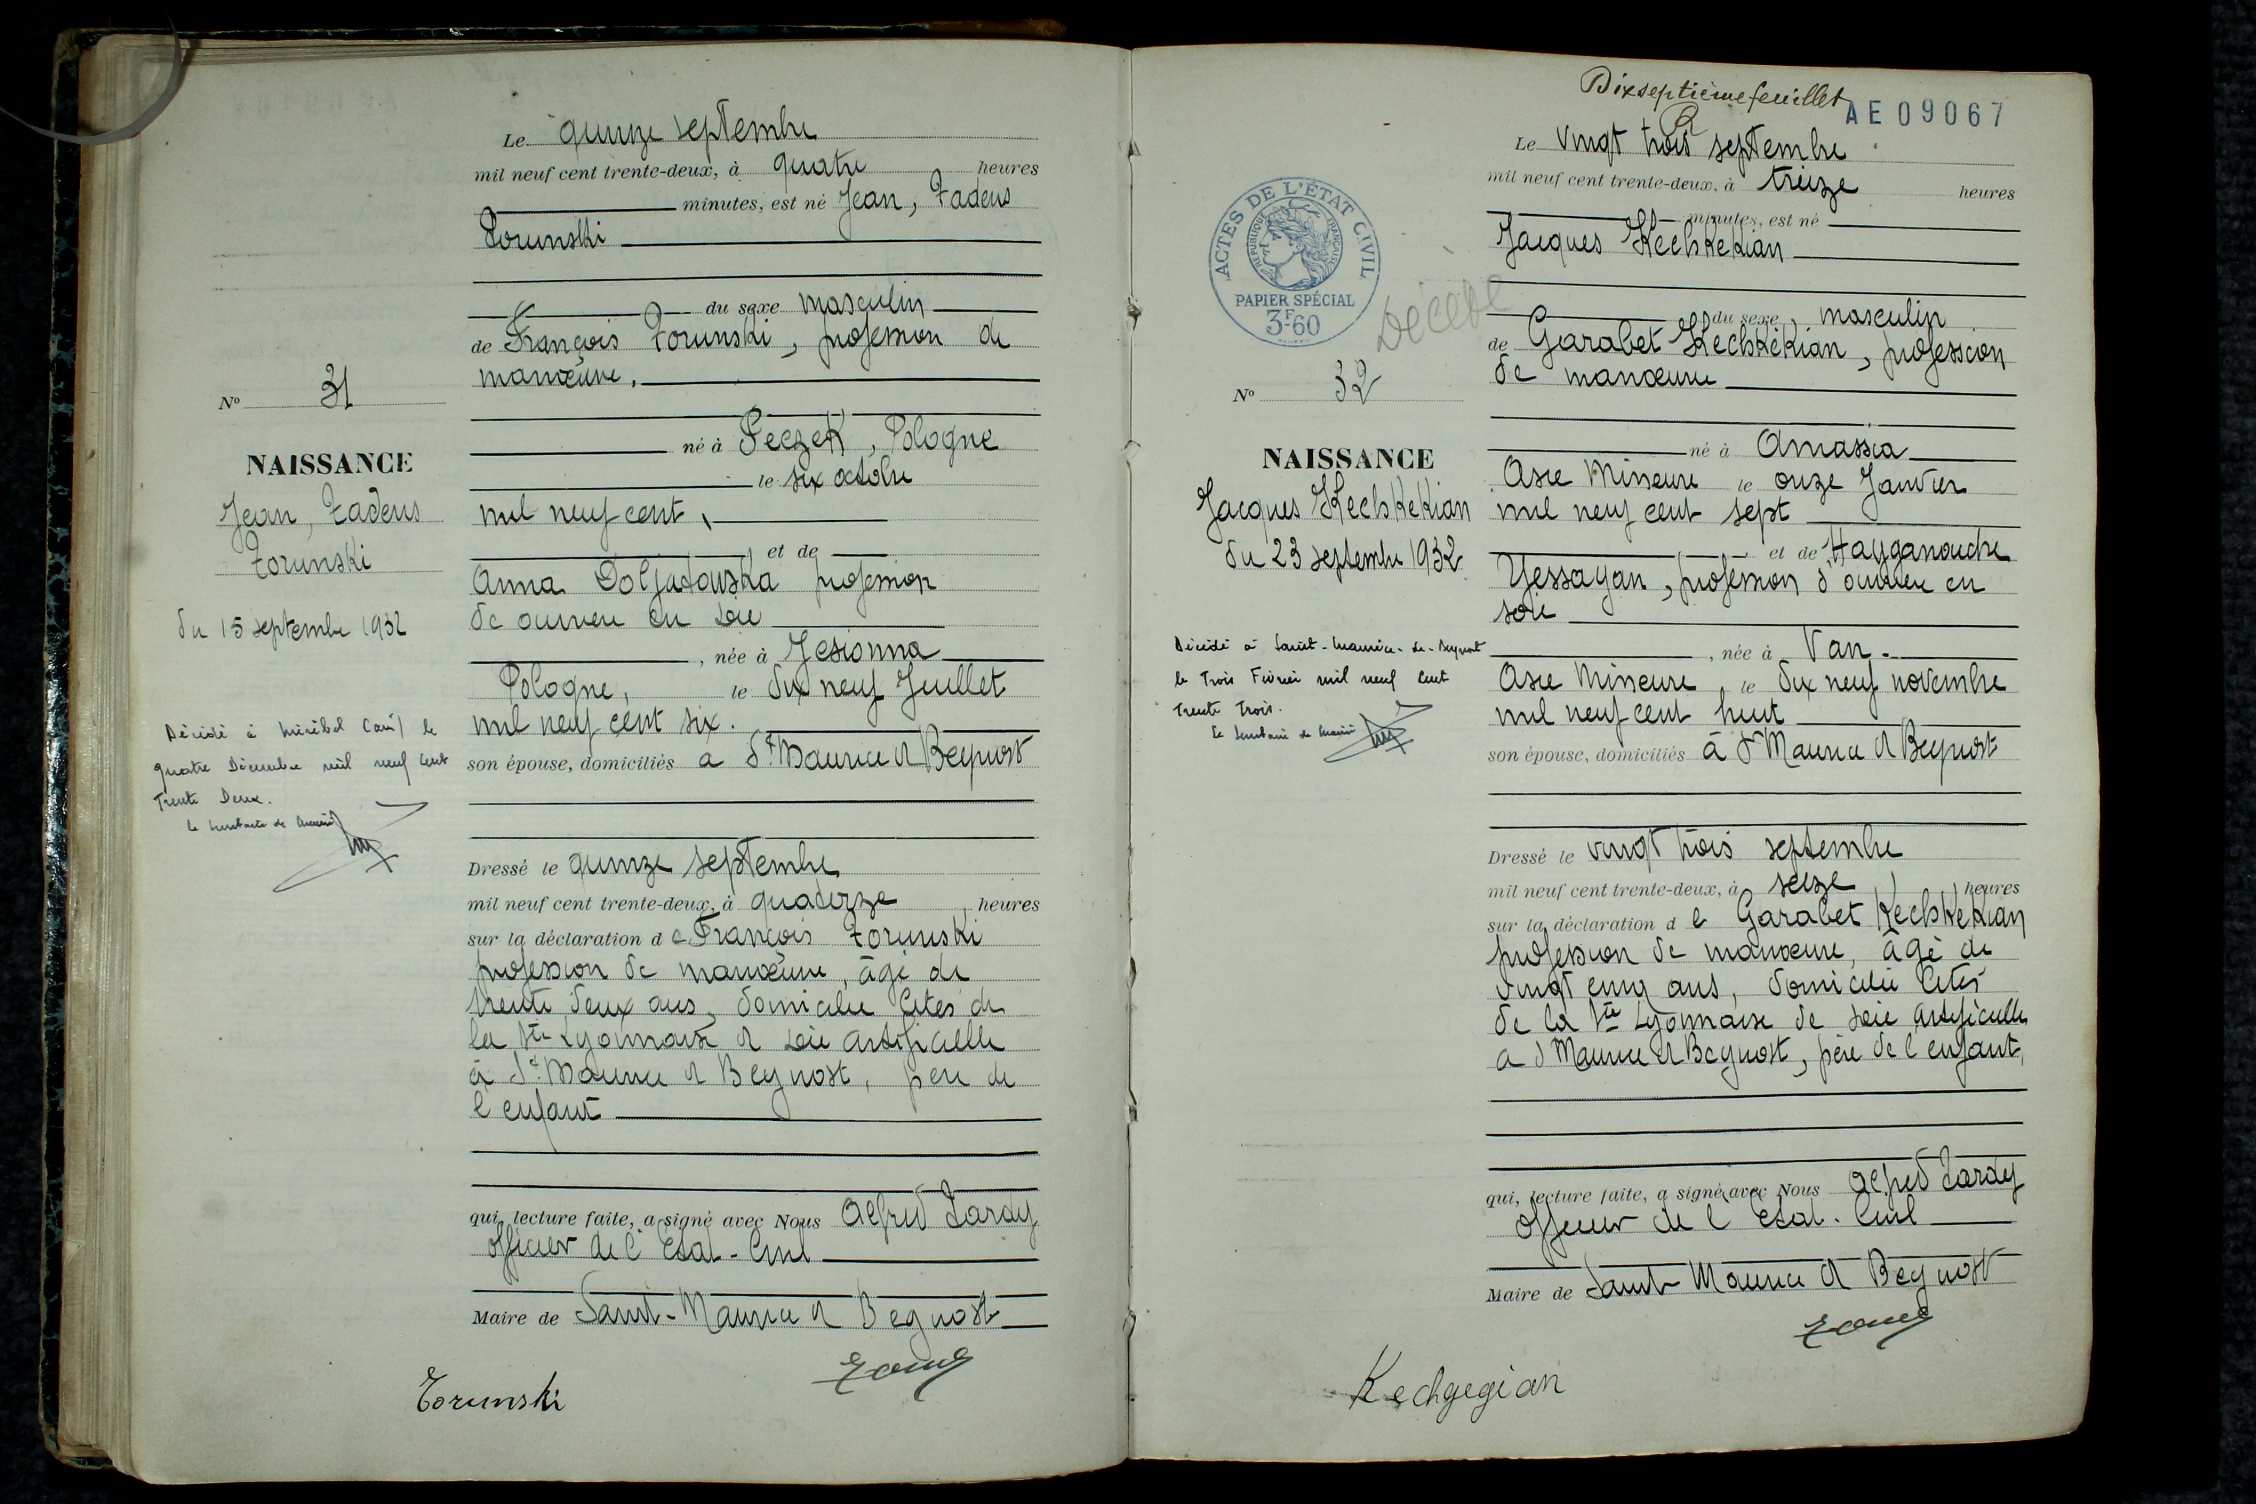 Le quinze septembre
mil neuf cent trente-deux, à quatre heures
minutes, est né Jean, Tadeus
Torunski
du sexe masculin
de François Torunski, profession de
manœuvre.
né à Peczek, Pologne
le six octobre
mil neuf cent,
et de
Anna profession
de ouvrière en soie
, née à Jesionna
Pologne, le dix neuf Juillet
mil neuf cent six.
son épouse, domiciliés a St Maurice de Beynost
Dressé le quinze septembre
mil neuf cent trente-deux, à quatorze heures
sur la déclaration de François Torunski
profession de manœuvre, âgé de
trente deux ans, domicilié Cités de
la Sté Lyonnaise de soie artificielle
à St Maurice de Beynost, père de
l'enfant
qui, lecture faite, a signé avec Nous Alfred Tardy
officier de l'Etat-Civil
Maire de Saint-Maurice de Beynost
Torunski
N° 31
NAISSANCE
Jean, Tadeus
Torunski
du 15 septembre 1932
Décédé à Miribel (Ain) le
quatre Décembre mil neuf cent
Trente Deux.
Le secrétaire de Mairie
Dixseptième feuillet
AE 09067
Le vingt trois septembre
mil neuf cent trente-deux, à treize heures
minutes, est né
Jacques Kechkekian
du sexe masculin
de Garabet Kechkekian, profession
de manœuvre
né à Amassia
Asie Mineure le onze Janvier
mil neuf cent sept
et de Hayganouche
Yessayan, profession d'ouvrière en
soie
, née à Van.
Asie Mineure, le dix neuf novembre
mil neuf cent huit
son épouse, domiciliés à St Maurice de Beynost
Dressé le vingt trois septembre
mil neuf cent trente-deux, à seize heures
sur la déclaration de Garabet Kechkekian
profession de manœuvre, âgé de
vingt cinq ans, domicilié Cités
de la Sté Lyonnaise de soie artificielle
a St Maurice de Beynost, père de l'enfant,
qui, lecture faite, a signé avec Nous Alfred Tardy
officier de l'Etat-Civil
Maire de Saint-Maurice de Beynost
Kechgegian
ACTES DE L'ÉTAT CIVIL
RÉPUBLIQUE FRANÇAISE
PAPIER SPÉCIAL
3F60
Décédé
N° 32
NAISSANCE
Jacques Kechkekian
du 23 septembre 1932
Décédé à Saint-Maurice-de-Beynost
le Trois Février mil neuf cent
Trente Trois.
Le secrétaire de Mairie